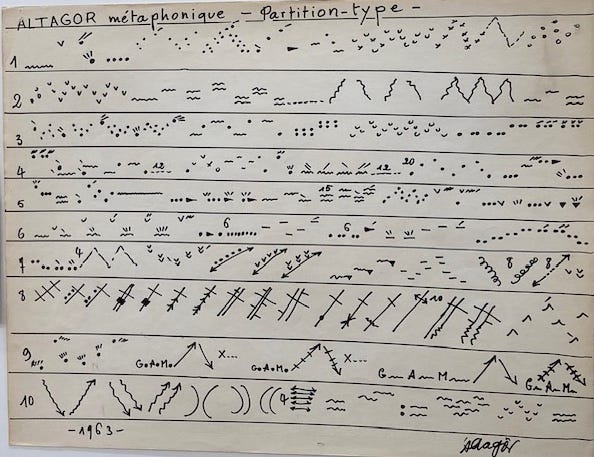 ALTAGOR métaphonique - Partition-type -
1
2
3
4 12 12 20
5 15
6 6 6
7 4 8 8
8 10
9 GoAoMo X--- GoAoMo X--- G A M G A M
10 4
-1963-
Altagor